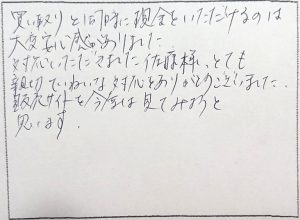 買い取りと同時に現金をいただけるのは
大変安心感がありました
対応いただきました佐藤様、とても
親切ていねいな対応ありがとうございました.
販売サイトを今度は見てみようと
思います.